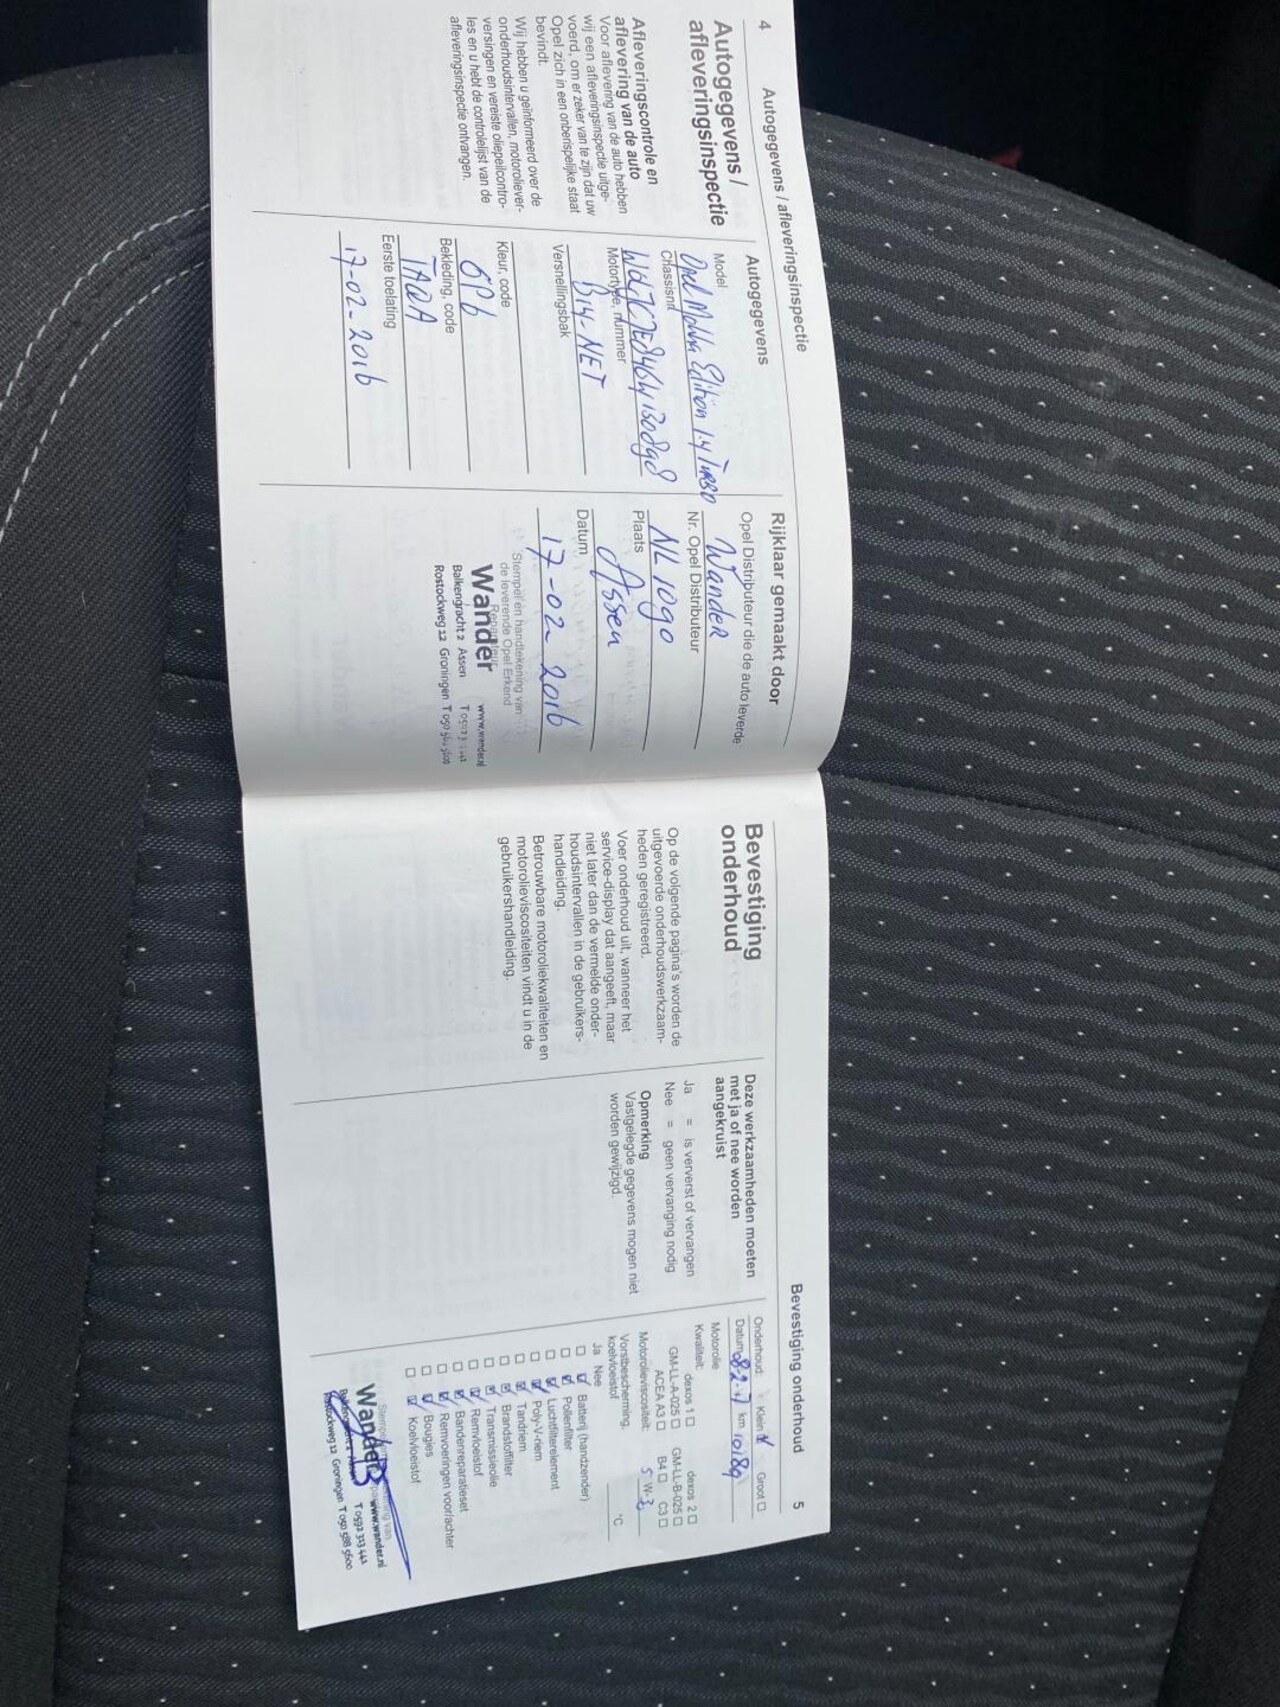 4
Autogegevens / afleveringsinspectie
Autogegevens /
afleveringsinspectie
Afleveringscontrole en
aflevering van de auto
Voor aflevering van de auto hebben
wij een afleveringsinspectie uitge-
voerd, om er zeker van te zijn dat uw
Opel zich in een onberispelijke staat
bevindt.
Wij hebben u geïnformeerd over de
onderhoudsintervallen, motoroliever-
versingen en vereiste oliepeilcontro-
les en u hebt de controlelijst van de
afleveringsinspectie ontvangen.
Autogegevens
Model
Opel Mokka Edition 1.4 Turbo
Chassisnr.
Motortype, nummer
B14-NET
Versnellingsbak
Kleur, code
GP6
Bekleding, code
TAQA
Eerste toelating
17-02-2016
Rijklaar gemaakt door
Opel Distributeur die de auto leverde
Wander
Nr. Opel Distributeur
NL 1090
Plaats
Assen
Datum
17-02-2016
Stempel en handtekening van
de leverende Opel Erkend
Reparateur
Wander
www.wander.nl
Balkengracht 2 Assen
Rostockweg 12 Groningen T 050 588 5600
Bevestiging onderhoud
5
Bevestiging
onderhoud
Op de volgende pagina's worden de
uitgevoerde onderhoudswerkzaam-
heden geregistreerd.
Voer onderhoud uit, wanneer het
service-display dat aangeeft, maar
niet later dan de vermelde onder-
houdsintervallen in de gebruikers-
handleiding.
Betrouwbare motoroliekwaliteiten en
motorolieviscositeiten vindt u in de
gebruikershandleiding.
Deze werkzaamheden moeten
met ja of nee worden
aangekruist
Ja = is ververst of vervangen
Nee = geen vervanging nodig
Opmerking
Vastgelegde gegevens mogen niet
worden gewijzigd.
Onderhoud: Klein Groot
Datum 8-2-17 km 10189
Motorolie
Kwaliteit: dexos 1 dexos 2
GM-LL-A-025 GM-LL-B-025
ACEA A3 B4 C3
Motorolieviscositeit: 5 W-
Vorstbescherming,
koelvloeistof °C
Ja Nee
Batterij (handzender)
Pollenfilter
Luchtfilterelement
Poly-V-riem
Tandriem
Brandstoffilter
Transmissieolie
Remvloeistof
Bandenreparatieset
Remvoeringen voor/achter
Bougies
Koelvloeistof
Wander
www.wander.nl
T 0592 313 442
Rostockweg 12 Groningen T 050 588 5600